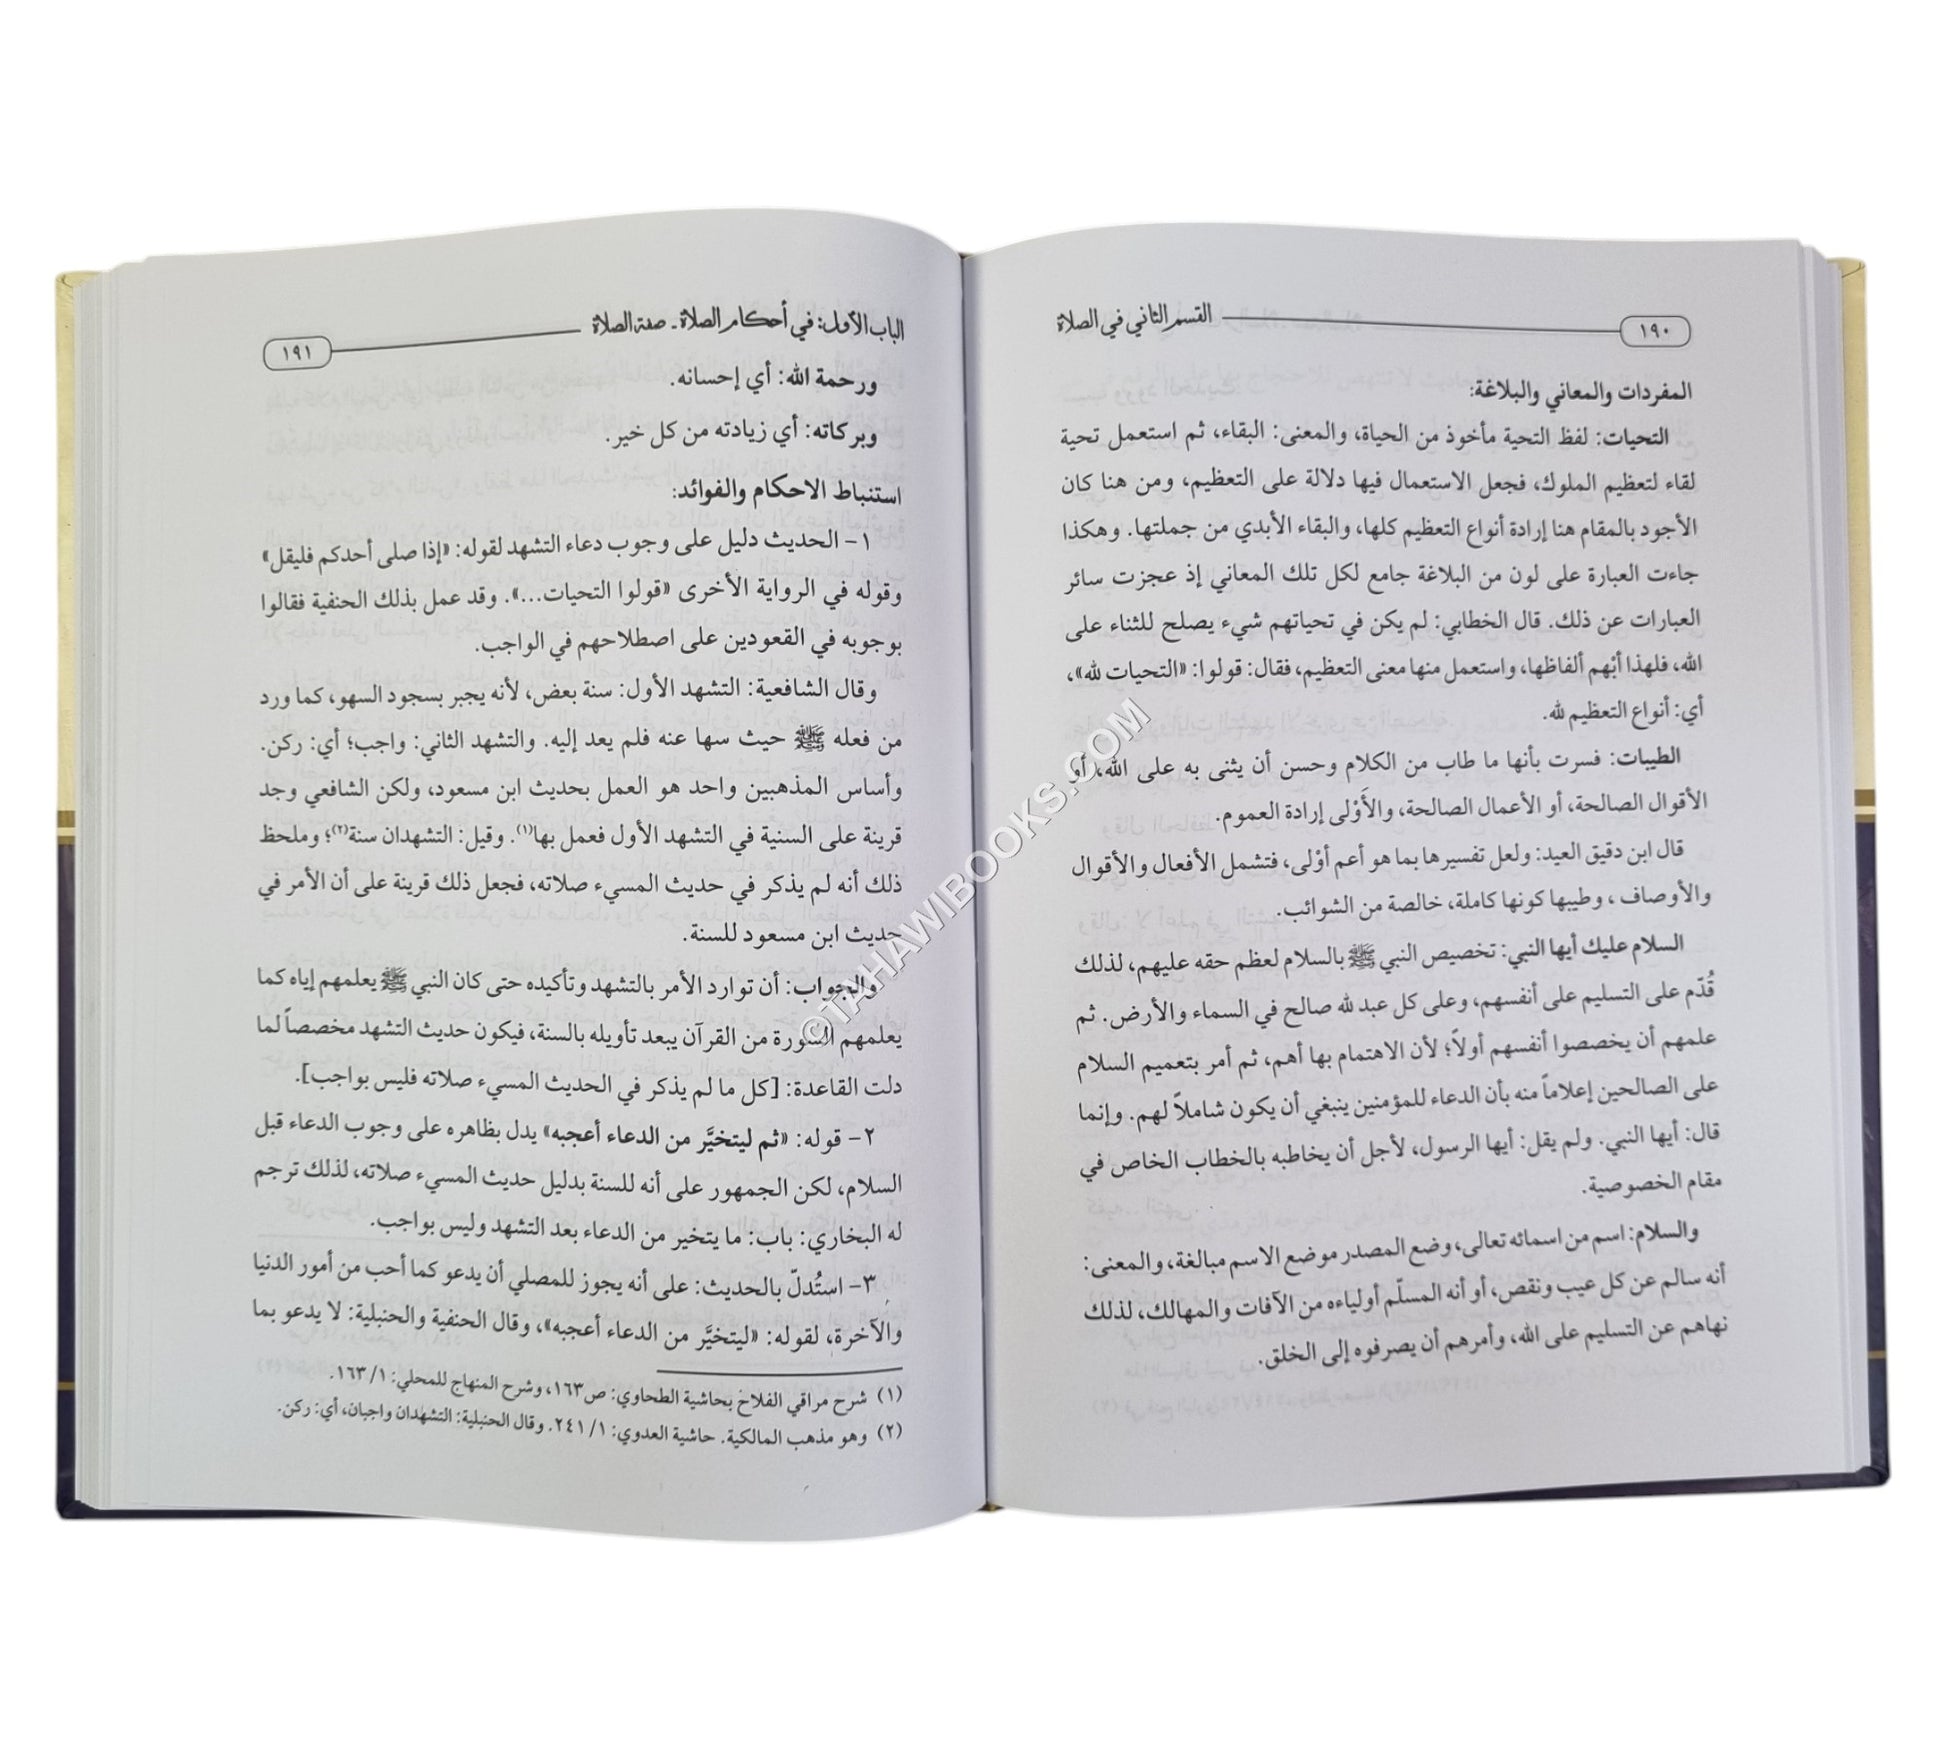 ١٩٠
القسم الثاني في الصلاة
المفردات والمعاني والبلاغة:
التحيات: لفظ التحية مأخوذ من الحياة، والمعنى: البقاء، ثم استعمل تحية
لقاء لتعظيم الملوك، فجعل الاستعمال فيها دلالة على التعظيم، ومن هنا كان
الأجود بالمقام هنا إرادة أنواع التعظيم كلها، والبقاء الأبدي من جملتها. وهكذا
جاءت العبارة على لون من البلاغة جامع لكل تلك المعاني إذ عجزت سائر
العبارات عن ذلك. قال الخطابي: لم يكن في تحياتهم شيء يصلح للثناء على
الله، فلهذا أبْهم ألفاظها، واستعمل منها معنى التعظيم، فقال: قولوا: «التحيات لله»،
أي: أنواع التعظيم لله.
الطيبات: فسرت بأنها ما طاب من الكلام وحسن أن يثنى به على الله، أو
الأقوال الصالحة، أو الأعمال الصالحة، والأَوْلى إرادة العموم.
قال ابن دقيق العيد: ولعل تفسيرها بما هو أعم أوْلى، فتشمل الأفعال والأقوال
والأوصاف، وطيبها كونها كاملة، خالصة من الشوائب.
السلام عليك أيها النبي: تخصيص النبي ﷺ بالسلام لعظم حقه عليهم، لذلك
قُدّم على التسليم على أنفسهم، وعلى كل عبد لله صالح في السماء والأرض. ثم
علمهم أن يخصصوا أنفسهم أولاً؛ لأن الاهتمام بها أهم، ثم أمر بتعميم السلام
على الصالحين إعلاماً منه بأن الدعاء للمؤمنين ينبغي أن يكون شاملاً لهم. وإنما
قال: أيها النبي. ولم يقل: أيها الرسول، لأجل أن يخاطبه بالخطاب الخاص في
مقام الخصوصية.
والسلام: اسم من اسمائه تعالى، وضع المصدر موضع الاسم مبالغة، والمعنى:
أنه سالم عن كل عيب ونقص، أو أنه المسلّم أولياءه من الآفات والمهالك، لذلك
نهاهم عن التسليم على الله، وأمرهم أن يصرفوه إلى الخلق.
الباب الأول: في أحكام الصلاة - صفة الصلاة
١٩١
ورحمة الله: أي إحسانه.
وبركاته: أي زيادته من كل خير.
استنباط الاحكام والفوائد:
١- الحديث دليل على وجوب دعاء التشهد لقوله: «إذا صلى أحدكم فليقل»
وقوله في الرواية الأخرى «قولوا التحيات...». وقد عمل بذلك الحنفية فقالوا
بوجوبه في القعودين على اصطلاحهم في الواجب.
وقال الشافعية: التشهد الأول: سنة بعض، لأنه يجبر بسجود السهو، كما ورد
من فعله ﷺ حيث سها عنه فلم يعد إليه. والتشهد الثاني: واجب؛ أي: ركن.
وأساس المذهبين واحد هو العمل بحديث ابن مسعود، ولكن الشافعي وجد
قرينة على السنية في التشهد الأول فعمل بها(١). وقيل: التشهدان سنة(٢)؛ وملحظ
ذلك أنه لم يذكر في حديث المسيء صلاته، فجعل ذلك قرينة على أن الأمر في
حديث ابن مسعود للسنة.
والجواب: أن توارد الأمر بالتشهد وتأكيده حتى كان النبي ﷺ يعلمهم إياه كما
يعلمهم السورة من القرآن يبعد تأويله بالسنة، فيكون حديث التشهد مخصصاً لما
دلت القاعدة: [كل ما لم يذكر في الحديث المسيء صلاته فليس بواجب].
٢- قوله: «ثم ليتخيَّر من الدعاء أعجبه» يدل بظاهره على وجوب الدعاء قبل
السلام، لكن الجمهور على أنه للسنة بدليل حديث المسيء صلاته، لذلك ترجم
له البخاري: باب: ما يتخير من الدعاء بعد التشهد وليس بواجب.
٣- استُدلّ بالحديث: على أنه يجوز للمصلي أن يدعو كما أحب من أمور الدنيا
والآخرة، لقوله: «ليتخيَّر من الدعاء أعجبه»، وقال الحنفية والحنبلية: لا يدعو بما
(١) شرح مراقي الفلاخ بحاشية الطحاوي: ص١٦٣، وشرح المنهاج للمحلي: ١/ ١٦٣.
(٢) وهو مذهب المالكية. حاشية العدوي: ١/ ٢٤١. وقال الحنبلية: التشهدان واجبان، أي: ركن.
©TAHAWIBOOKS.COM